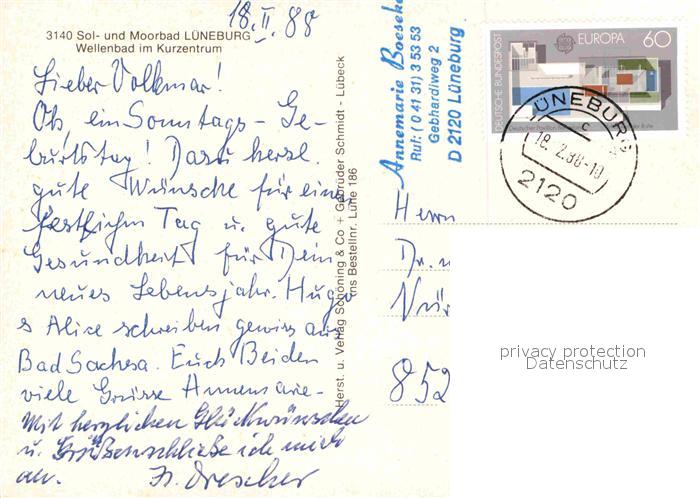 18.II.88
3140 Sol- und Moorbad LÜNEBURG
Wellenbad im Kurzentrum
Lieber Volkmar!
Oh, ein Sonntags-Ge-
burtstag! Dazu herzl.
gute Wünsche für einen
festlichen Tag u. gute
Gesundheit für Dein
neues Lebensjahr. Hugo
s Alice schreiben gewiss aus
Bad Sachsa. Euch Beiden
viele Grüsse Annemarie-
Mit herzlichen Glückwünschen
u. Grüßen schließe ich mich
an. Fr. Drescher
Herst. u. Verlag Schöning & Co + Gebrüder Schmidt - Lübeck
ns Bestellnr. Lüne 186
Annemarie Boeseke
Ruf: (0 41 31) 3 53 53
Gebhardiweg 2
D 2120 Lüneburg
DEUTSCHE BUNDESPOST
EUROPA 60
LÜNEBURG
c
18.2.88-19
2120
Herrn
Dr.
Nür
852
privacy protection
Datenschutz